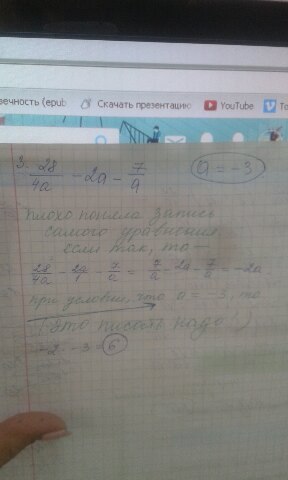 вечность (epub
Скачать презентацию
YouTube
3. 28/4a - 2a - 7/a a = -3
Плохо поняла запись
самого уравнения,
если так, то —
28/4a - 2a/1 - 7/a = 7/a - 2a - 7/a = -2a
при условии, что a = -3, то
(это писать надо)
-2 · -3 = 6